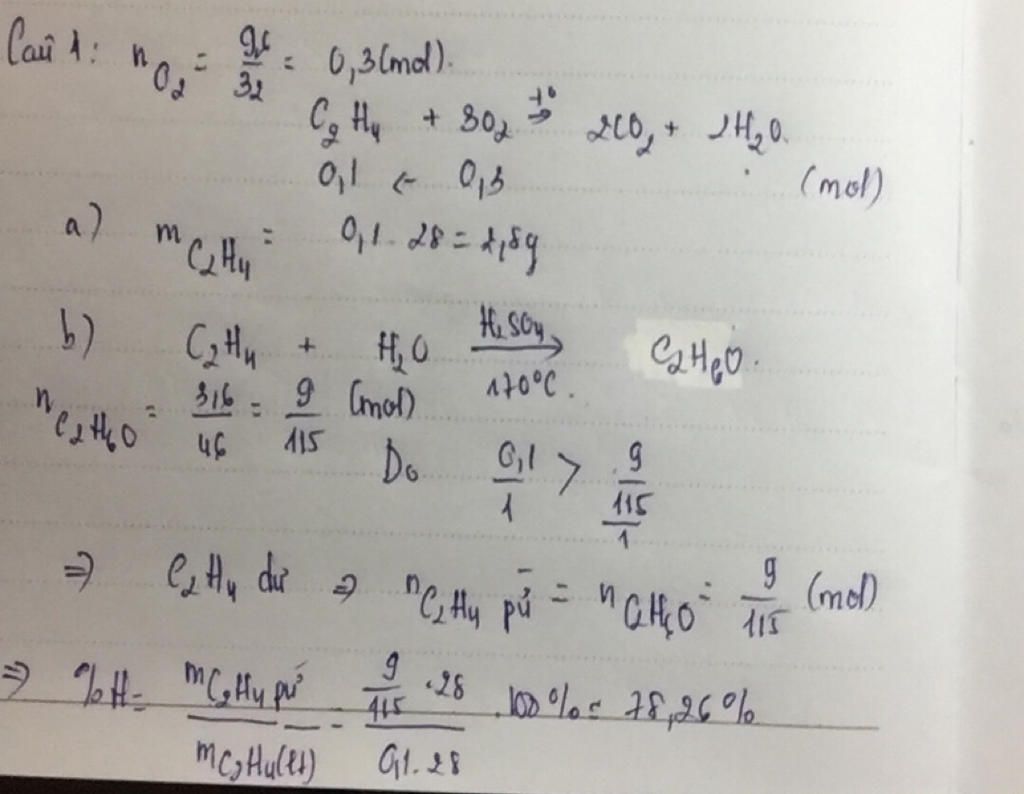 Câu 1: nO₂ = 9,6/32 = 0,3 (mol).
C₂H₄ + 3O₂ →(t°) 2CO₂ + 2H₂O.
0,1 ← 0,3 (mol)
a) mC₂H₄ = 0,1 . 28 = 2,8g
b) C₂H₄ + H₂O →(H₂SO₄, 170°C.) C₂H₆O.
nC₂H₆O = 3,6/46 = 9/115 (mol)
Do 0,1/1 > (9/115)/1
⇒ C₂H₄ dư ⇒ nC₂H₄ pứ = nC₂H₆O = 9/115 (mol)
⇒ %H = mC₂H₄ pứ/mC₂H₄(lt) = (9/115 . 28)/(0,1 . 28) . 100% = 78,26%